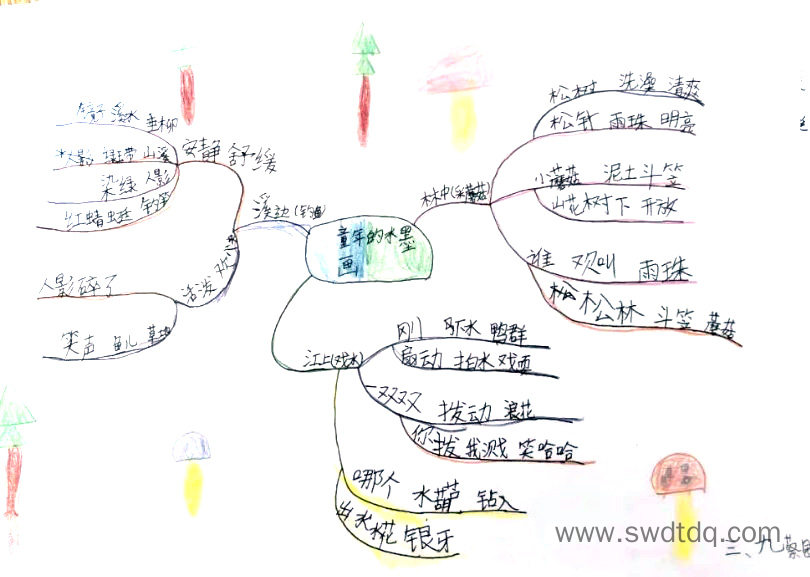 童年的水墨
画
溪边(钓鱼)
安静 舒缓
镜子 溪水 垂柳
人影 山溪
染绿 人影
红蜻蜓 钓竿
活泼
人影碎了
笑声 鱼儿 草地
江上(戏水)
刚 跃水 鸭群
扇动 拍水 戏耍
一双双 拨动 浪花
你拨我溅 笑哈哈
哪个 水葫 钻入
出水 水花 银牙
林中(采蘑菇)
松树 洗澡 清爽
松针 雨珠 明亮
小蘑菇 泥土 斗笠
山花 树下 开放
谁 欢叫 雨珠
松松林 斗笠 蘑菇
www.swdtdq.com
三、九 蔡